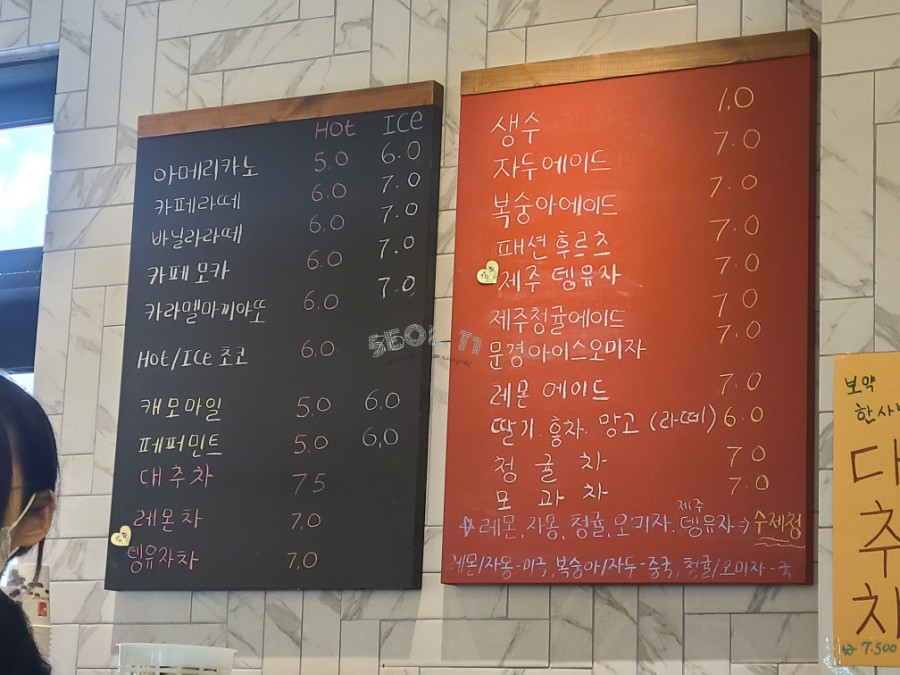 Hot ICe
아메리카노 5.0 6.0
카페라떼 6.0 7.0
바닐라라떼 6.0 7.0
카페모카 6.0 7.0
카라멜마끼야또 6.0 7.0
Hot/Ice 초코 6.0
캐모마일 5.0 6.0
페퍼민트 5.0 6.0
대추차 75
레몬차 7.0
뎅유자차 7.0
생수 1.0
자두에이드 7.0
복숭아에이드 7.0
패션후르츠 7.0
제주 뎅유자 7.0
제주청귤에이드 70
문경아이스오미자 7.0
레몬 에이드 7.0
딸기. 홍차. 망고 (라떼) 6.0
청귤차 70
모과차 7.0
레몬, 자몽, 청귤, 오미자. 제주 뎅유자 → 수제청
레몬/자몽-미국, 복숭아/자두-중국, 청귤/오미자-국
보약
한사
대
추
차
₩ 7.500